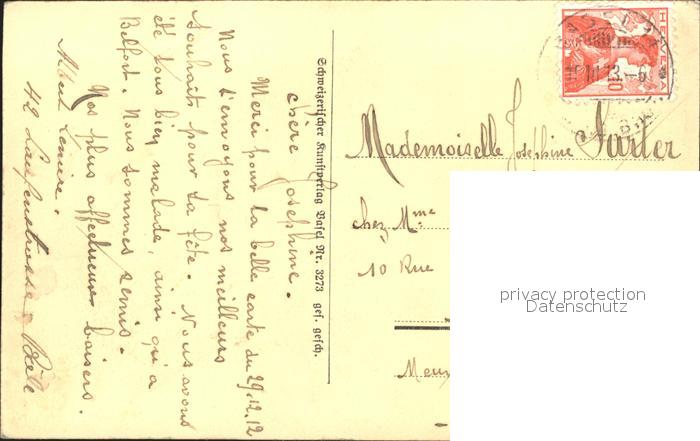 Chère Josephine.
Merci pour ta belle carte du 29.12.12
Nous t'envoyons nos meilleurs
souhaits pour ta fête. Nous avons
été tous bien malade, ainsi qu'a
Belfort. Nous sommes remis.
Nos plus affectueux baisers.
Albert
42 Laufenstrasse Bâle
Schweizerischer Kunstverlag Basel Nr. 3273 ges. gesch.
HELVETIA
10
Mademoiselle Joséphine
chez Mme
10 Rue
privacy protection
Datenschutz